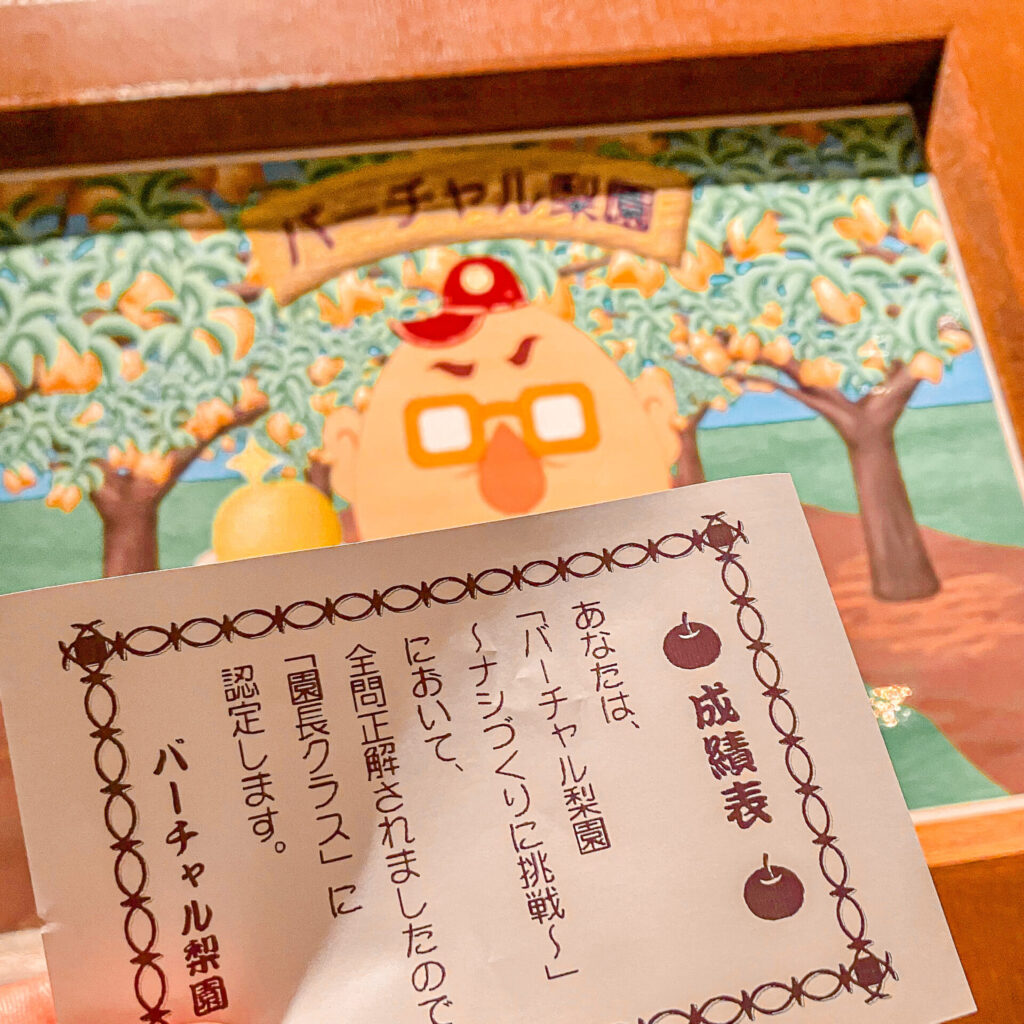 バーチャル梨園
成績表
あなたは、
「バーチャル梨園
～ナシづくりに挑戦～」
において、
全問正解されましたので
「園長クラス」に
認定します。
バーチャル梨園